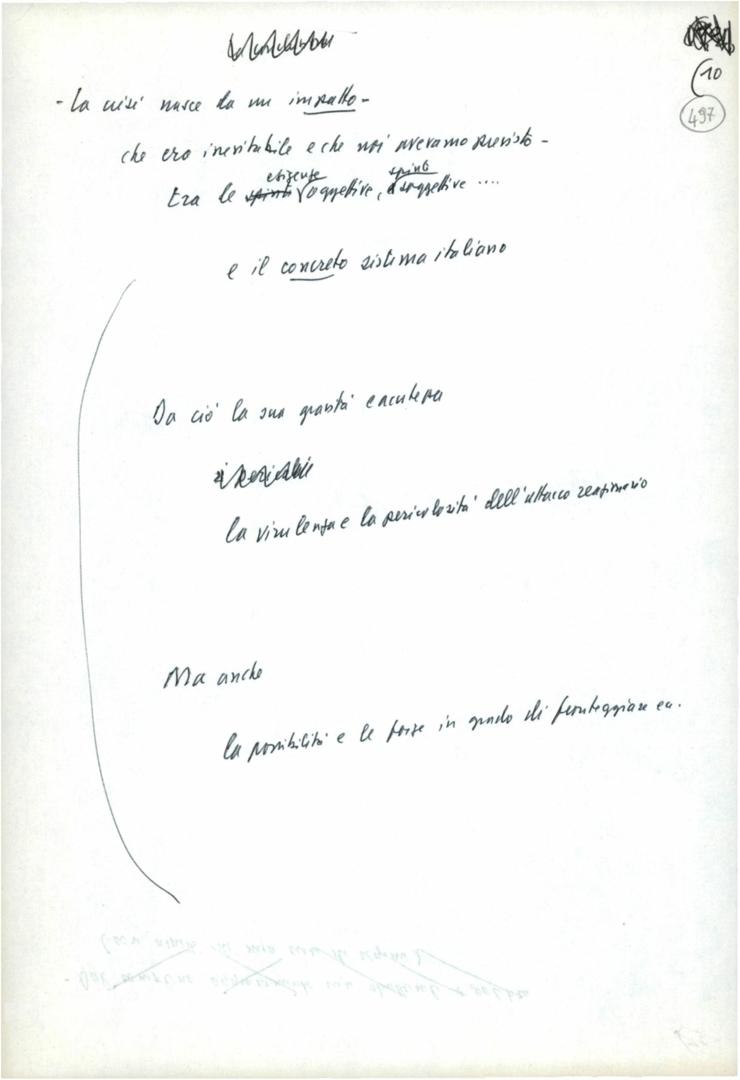 (10
497
- La crisi nasce da un impatto -
che era inevitabile e che noi avevamo previsto -
esigenze spinte
tra le spinte oggettive, soggettive ....
e il concreto sistema italiano
Da ciò la sua gravità e acutezza
la virulenza e la pericolosità dell'attacco reazionario
Ma anche
la possibilità e le forze in grado di fronteggiare ecc.